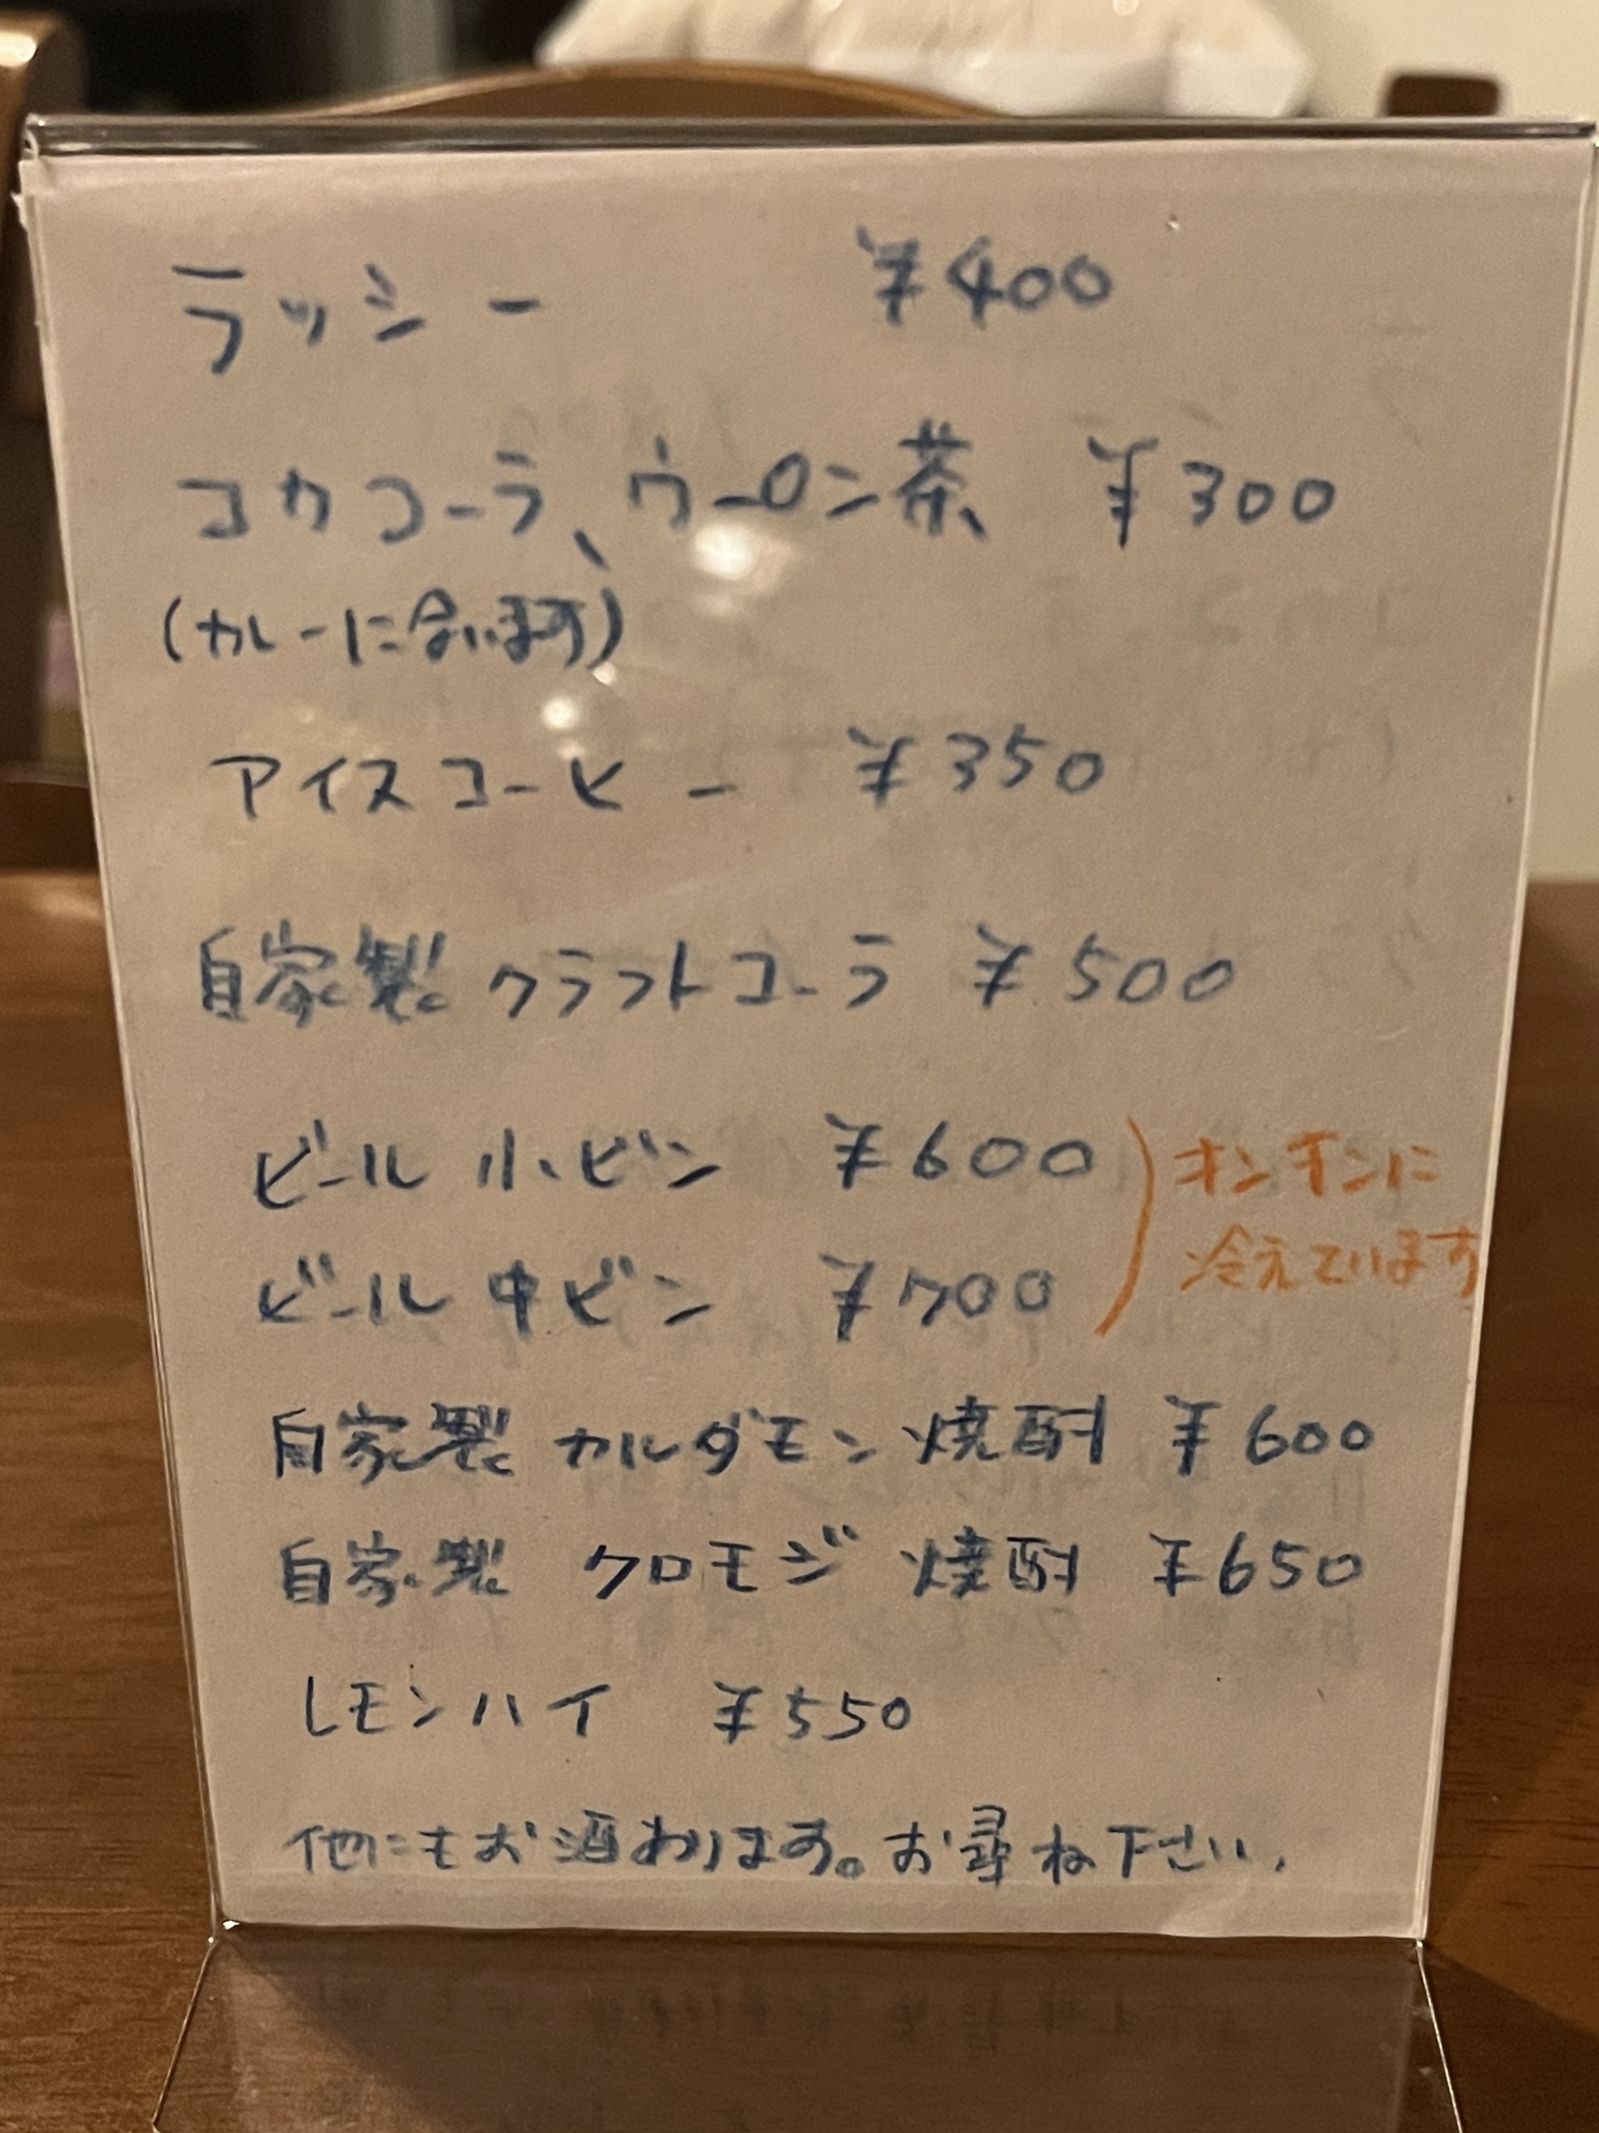 ラッシー ¥400
コカコーラ、ウーロン茶、 ¥300
(カレーに合います)
アイスコーヒー ¥350
自家製 クラフトコーラ ¥500
ビール 小ビン ¥600
ビール 中ビン ¥700
オンオンに
冷えています
自家製 カルダモン 焼酎 ¥600
自家製 クロモジ 焼酎 ¥650
レモンハイ ¥550
他にもお酒あります。お尋ね下さい。